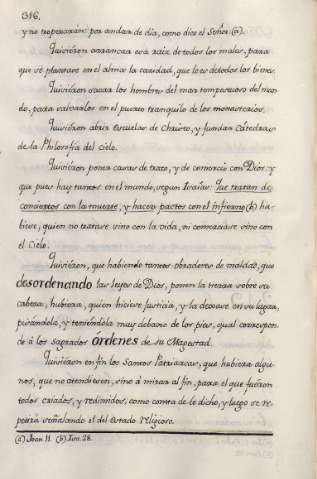 316.
y no tropezarán: por andar de dia, como dice el Señor (a).
Quisiéron arrancar esa raiz de todos los males, para
que se plantase en el alma la caridad, que lo es de todos los bienes.
Quisiéron sacar los hombres del mar tempestuoso del mun-
do, para salvarlos en el puerto tranquilo de los monasterios.
Quisiéron abrir Escuelas de Christo, y fundar Cátedras
de la Philosofia del Cielo.
Quisiéron poner casas de trato, y de comercio con Dios: y
que pues hay tantos en el mundo, segun Isaías: Que tratan de
conciertos con la muerte, y hacen pactos con el infierno (b) hu-
biese, quien no tratase sino con la vida, ni comerciase sino con
el Cielo.
Quisiéron, que habiendo tantos obradores de maldad, que
desordenando las leyes de Dios, ponen la tierra sobre su
cabeza, hubiera, quien hiciese justicia, y la dexase en su lugar,
pisándola, y teniéndola muy debaxo de los pies, qual corresponde
á los sagrados Ordenes de su Magestad.
Quisiéron en fin los Santos Patriarcas, que hubiera algu-
nos, que atendiesen, sino á mirar al fin, para el que fuéron
todos criados, y redimidos, como consta de lo dicho, y luego se re-
petirá señalando el del estado religioso.
(a) Joan. 11. (b) Isai. 28.